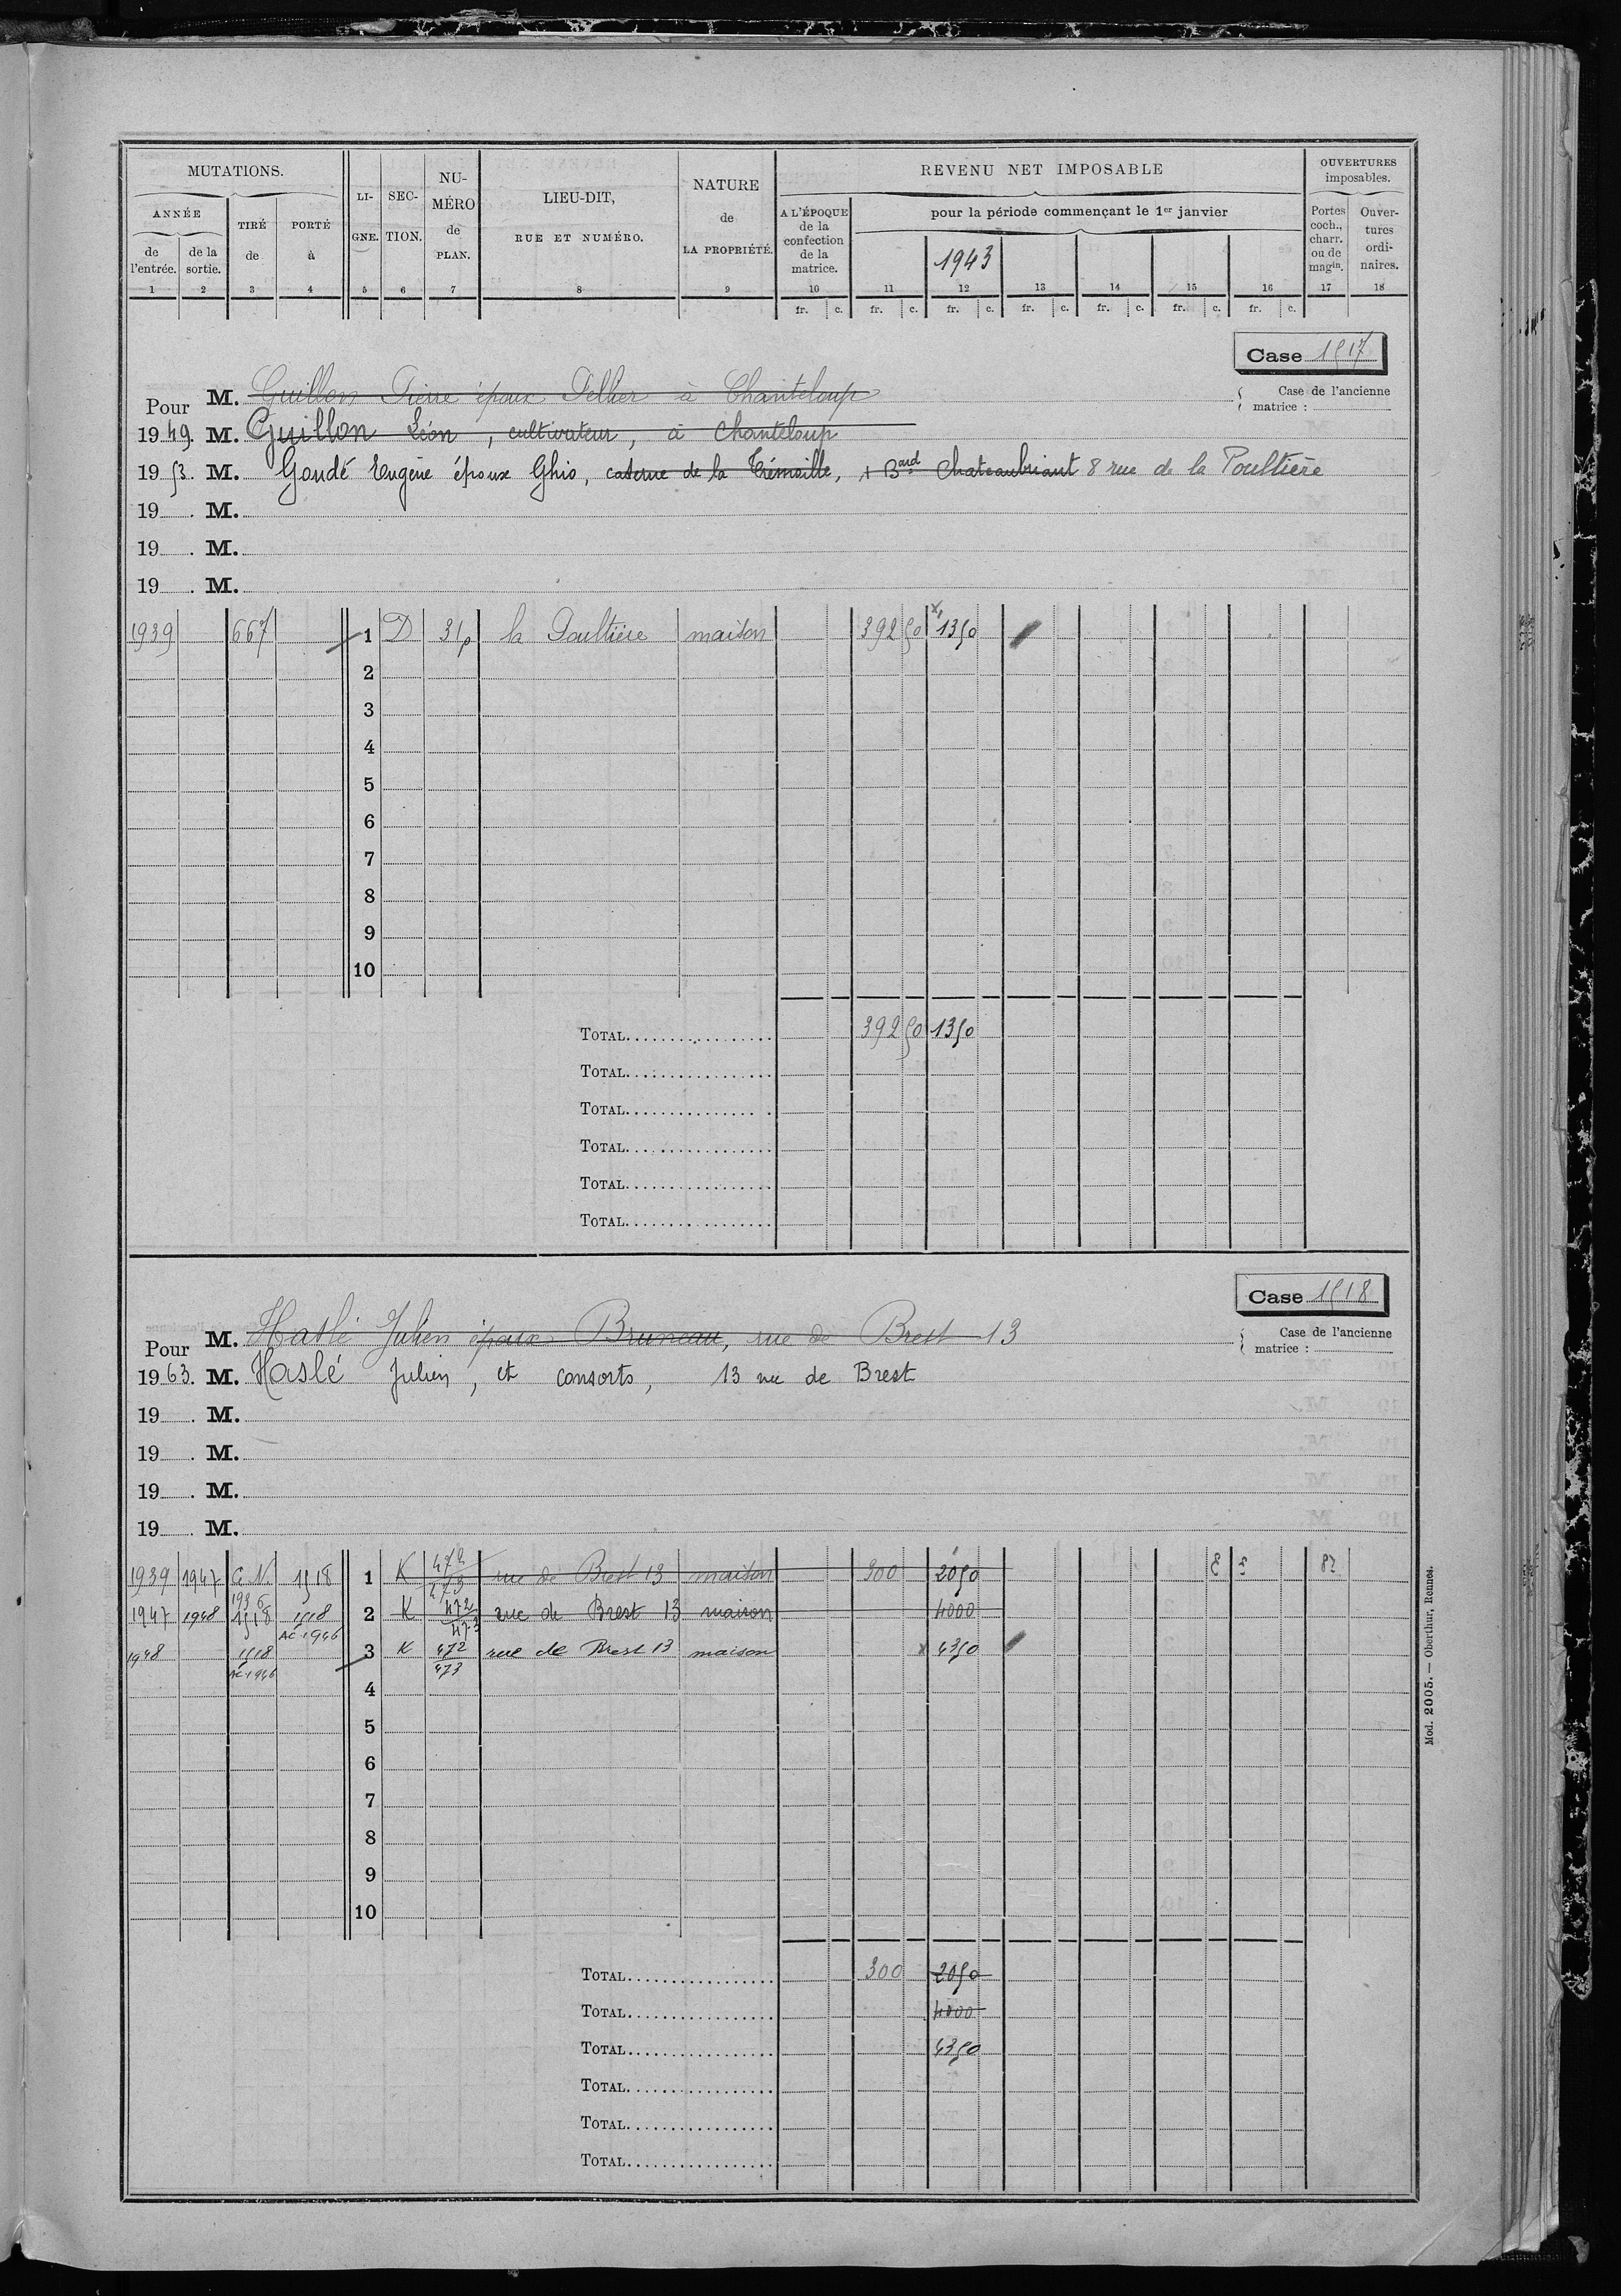 MUTATIONS.
ANNÉE
de l'entrée.
de la sortie.
TIRÉ de
PORTÉ à
LI-GNE.
SEC-TION.
NU-MÉRO de PLAN.
LIEU-DIT, RUE ET NUMÉRO.
NATURE de LA PROPRIÉTÉ.
REVENU NET IMPOSABLE
A L'ÉPOQUE de la confection de la matrice.
pour la période commençant le 1er janvier
1943
OUVERTURES imposables.
Portes coch., charr. ou de magin.
Ouver-tures ordi-naires.
1 2 3 4 5 6 7 8 9 10 11 12 13 14 15 16 17 18
fr. c. fr. c. fr. c. fr. c. fr. c. fr. c. fr. c.
Case 1517
Case de l'ancienne matrice :
Pour M. Guillon Pierre époux Pellier à Chanteloup
1949. M. Guillon Léon, cultivateur, à Chanteloup
1953. M. Gondé Eugène époux Ghio, caserne de la Trémoille, + Bard Chateaubriant 8 rue de la Poultière
19 . M.
19 . M.
19 . M.
1939 667 1 D 31p la Poultière maison 392 50 x 1350
2
3
4
5
6
7
8
9
10
TOTAL 392 50 1350
TOTAL
TOTAL
TOTAL
TOTAL
TOTAL
Case 1518
Case de l'ancienne matrice :
Pour M. Haslé Julien époux Bruneau, rue de Brest 13
1963. M. Haslé Julien, et consorts, 13 rue de Brest
19 . M.
19 . M.
19 . M.
19 . M.
1939 1947 C.N. 1936 1518 1 K 472 473 rue de Brest 13 maison 300 2050
1947 1948 1518 1518 AC 1946 2 K 472 473 rue de Brest 13 maison 4000
1948 1518 AC 1946 3 K 472 473 rue de Brest 13 maison x 4350
4
5
6
7
8
9
10
TOTAL 300 2050
TOTAL 4000
TOTAL 4350
TOTAL
TOTAL
TOTAL
Mod. 2005. — Oberthur, Rennes.